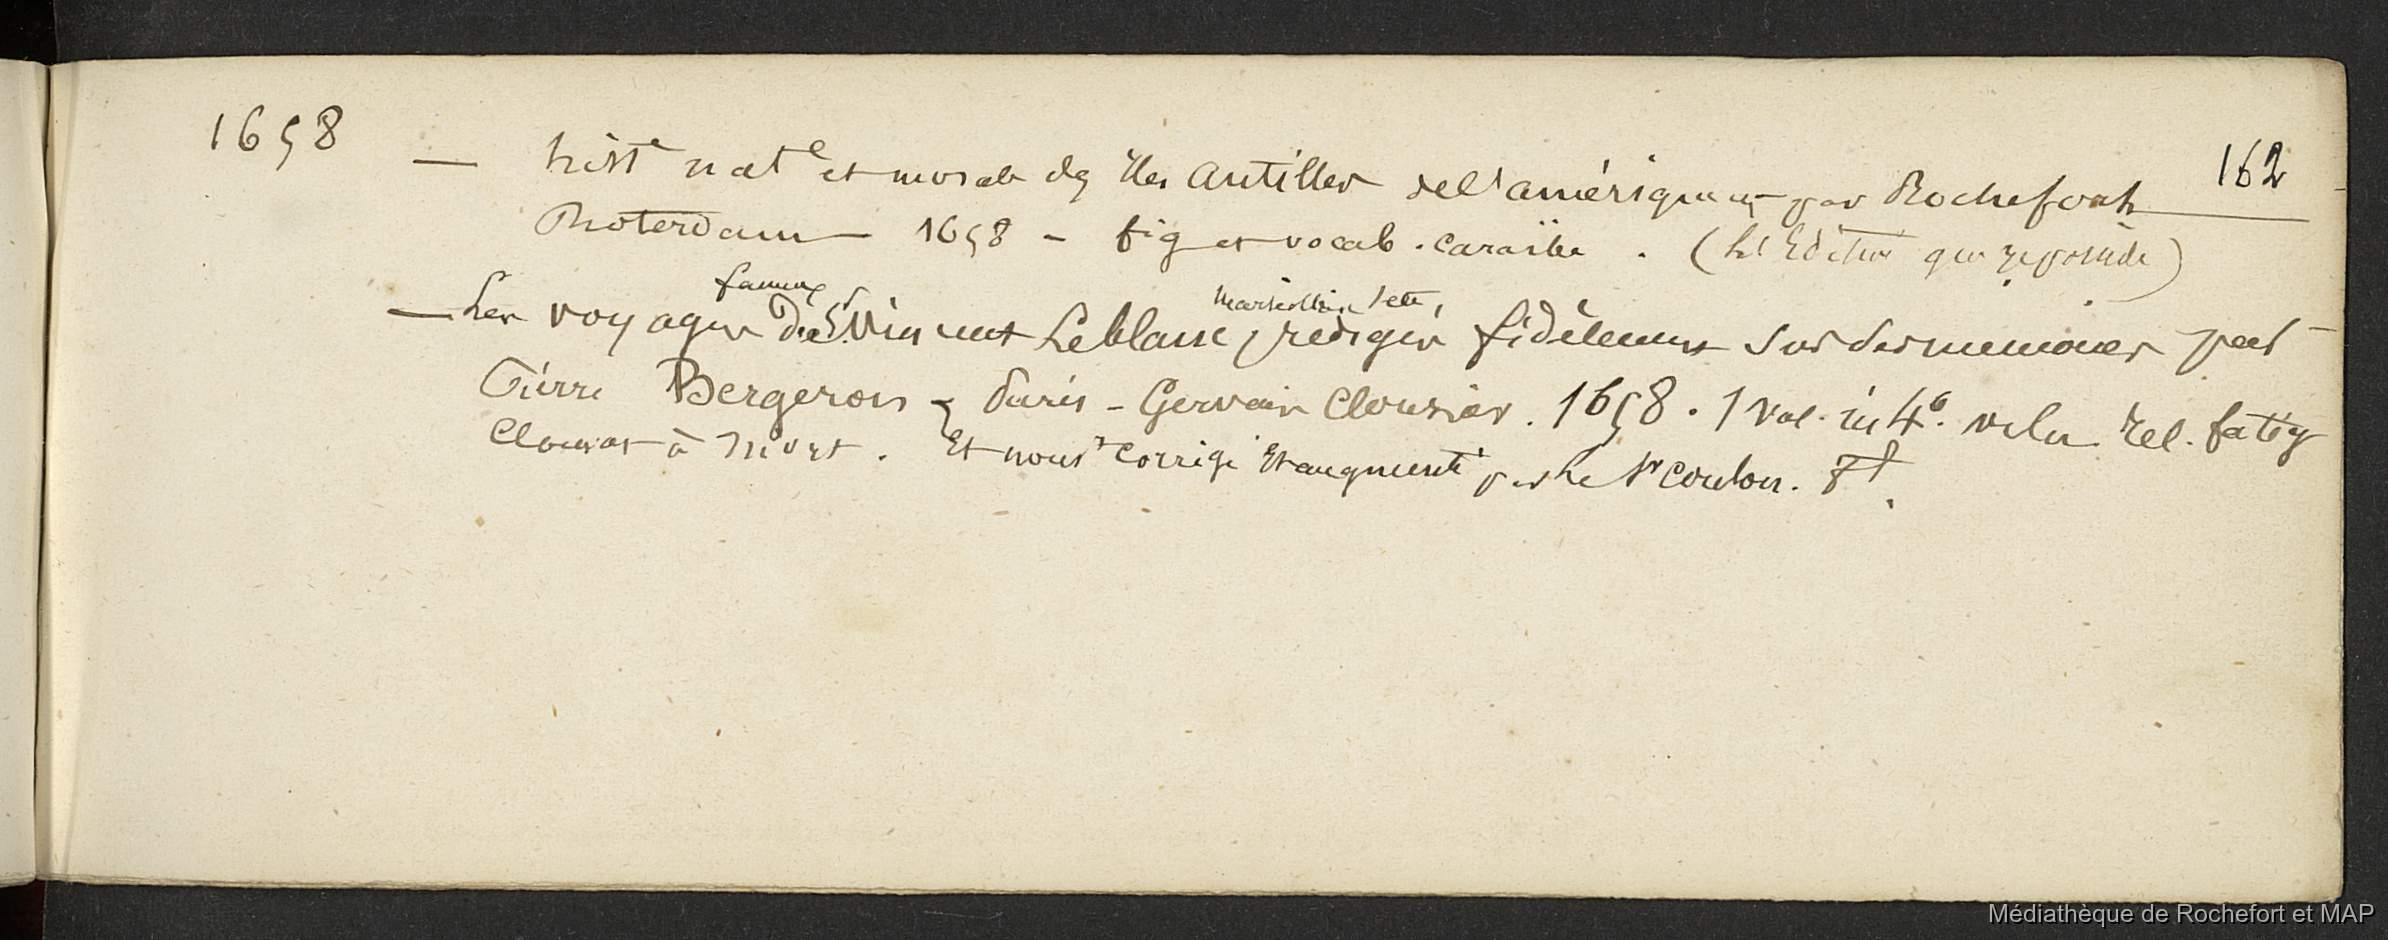 1658
162
— hist.e nat.e et morale des Iles Antilles de l'amérique par Rochefort
Rhoterdam — 1658 — fig et vocab. caraïbe. (C'est l'Edition que je possède)
— Les voyages fameux du Sr. Vincent Leblanc marseillais &c, redigés fidèlement sur ses memoires par
Pierre Bergeron — Paris — Gervais Clousier. 1658. 1 vol. in 4°. velin. rel. fatig
Clouzot à Niort. Et nouvt corrigé et augmenté par le Sr Coulon. 8f.
Médiathèque de Rochefort et MAP